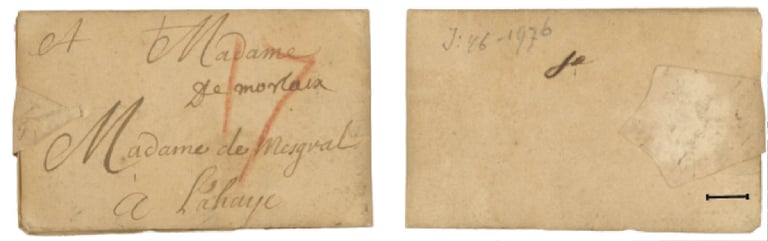 A Madame
De morlaix
17
Madame de Mesgral
à Lahaye
J: 46-1976